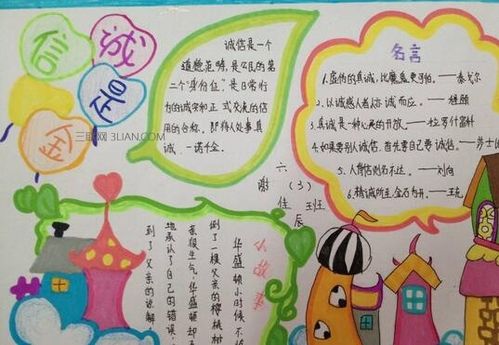 诚信是金
三联网 3LIAN.COM
诚信是一个
道德范畴,是公民的第
二个"身份证",是日常行
为的诚实和正式交流的信
用的合称。即待人处事真
诚、一诺千金。
名言
1.虚伪的真诚,比魔鬼更可怕。——泰戈尔
2.以诚感人者,人亦诚而应。——程颐
3.真诚是一种心灵的开放。——拉罗什富科
4.如果要别人诚信,首先要自己诚信。——莎士
5.人背信则名不达。——刘向
6.精诚所至,金石为开。——王充
六(3)班
谢佳辰
小故事
华盛顿小时候不
倒了一棵父亲的樱桃树
亲很生气,华盛顿却
地承认了自己的错误,
到了父亲的谅解